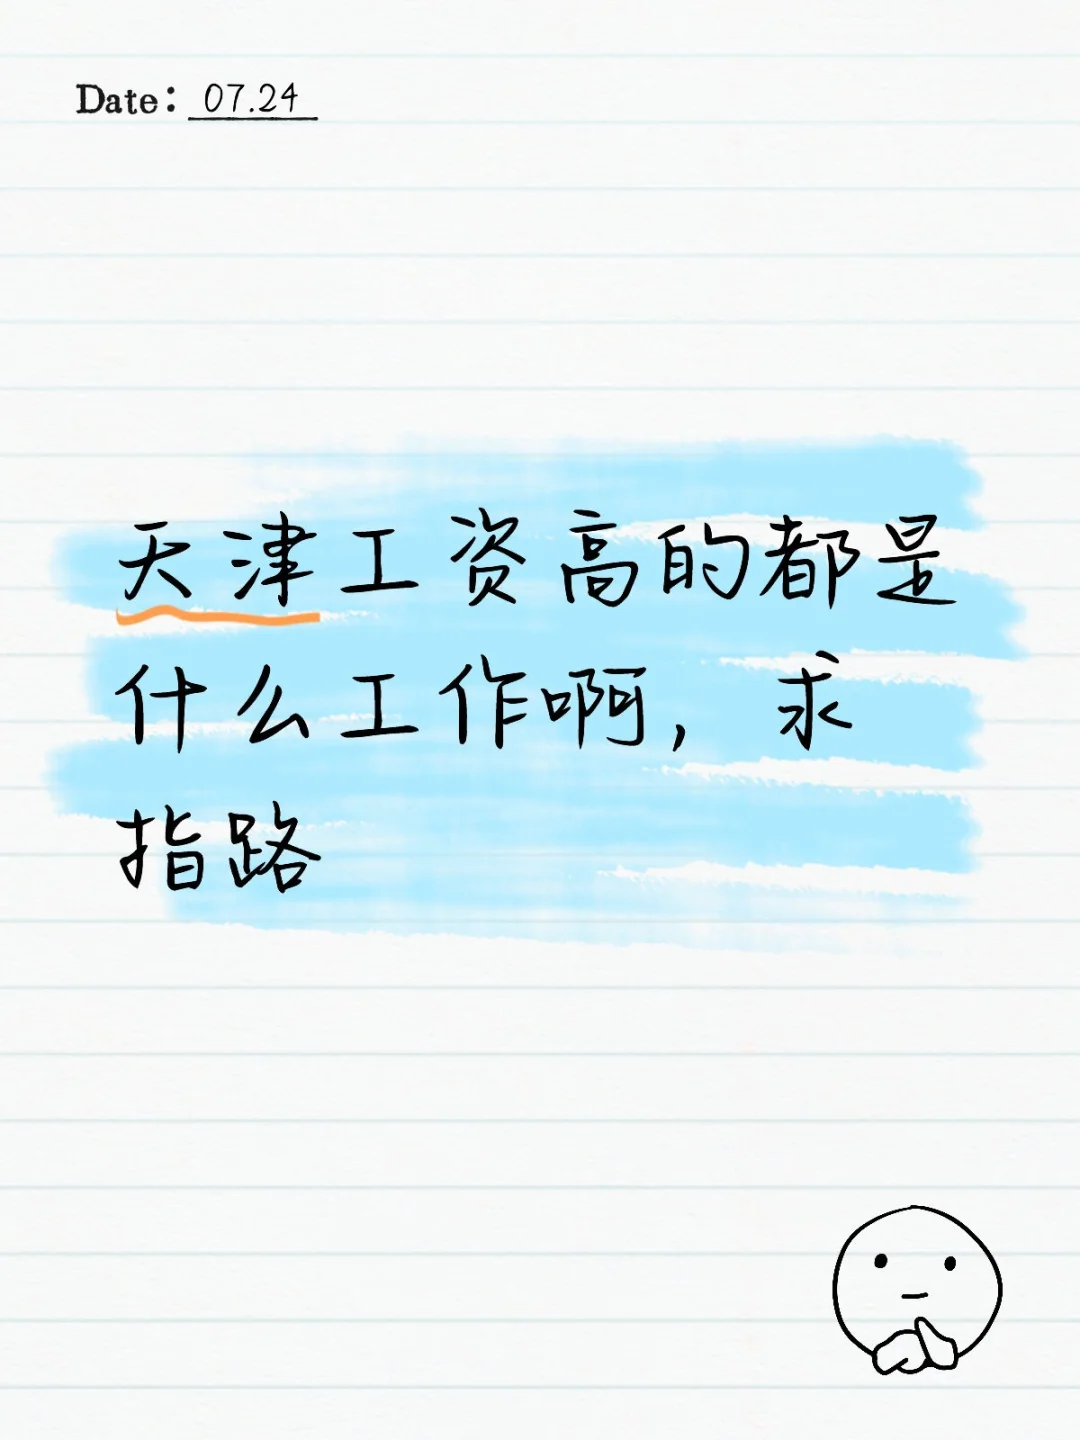 Date: 07.24
天津工资高的都是
什么工作啊，求
指路